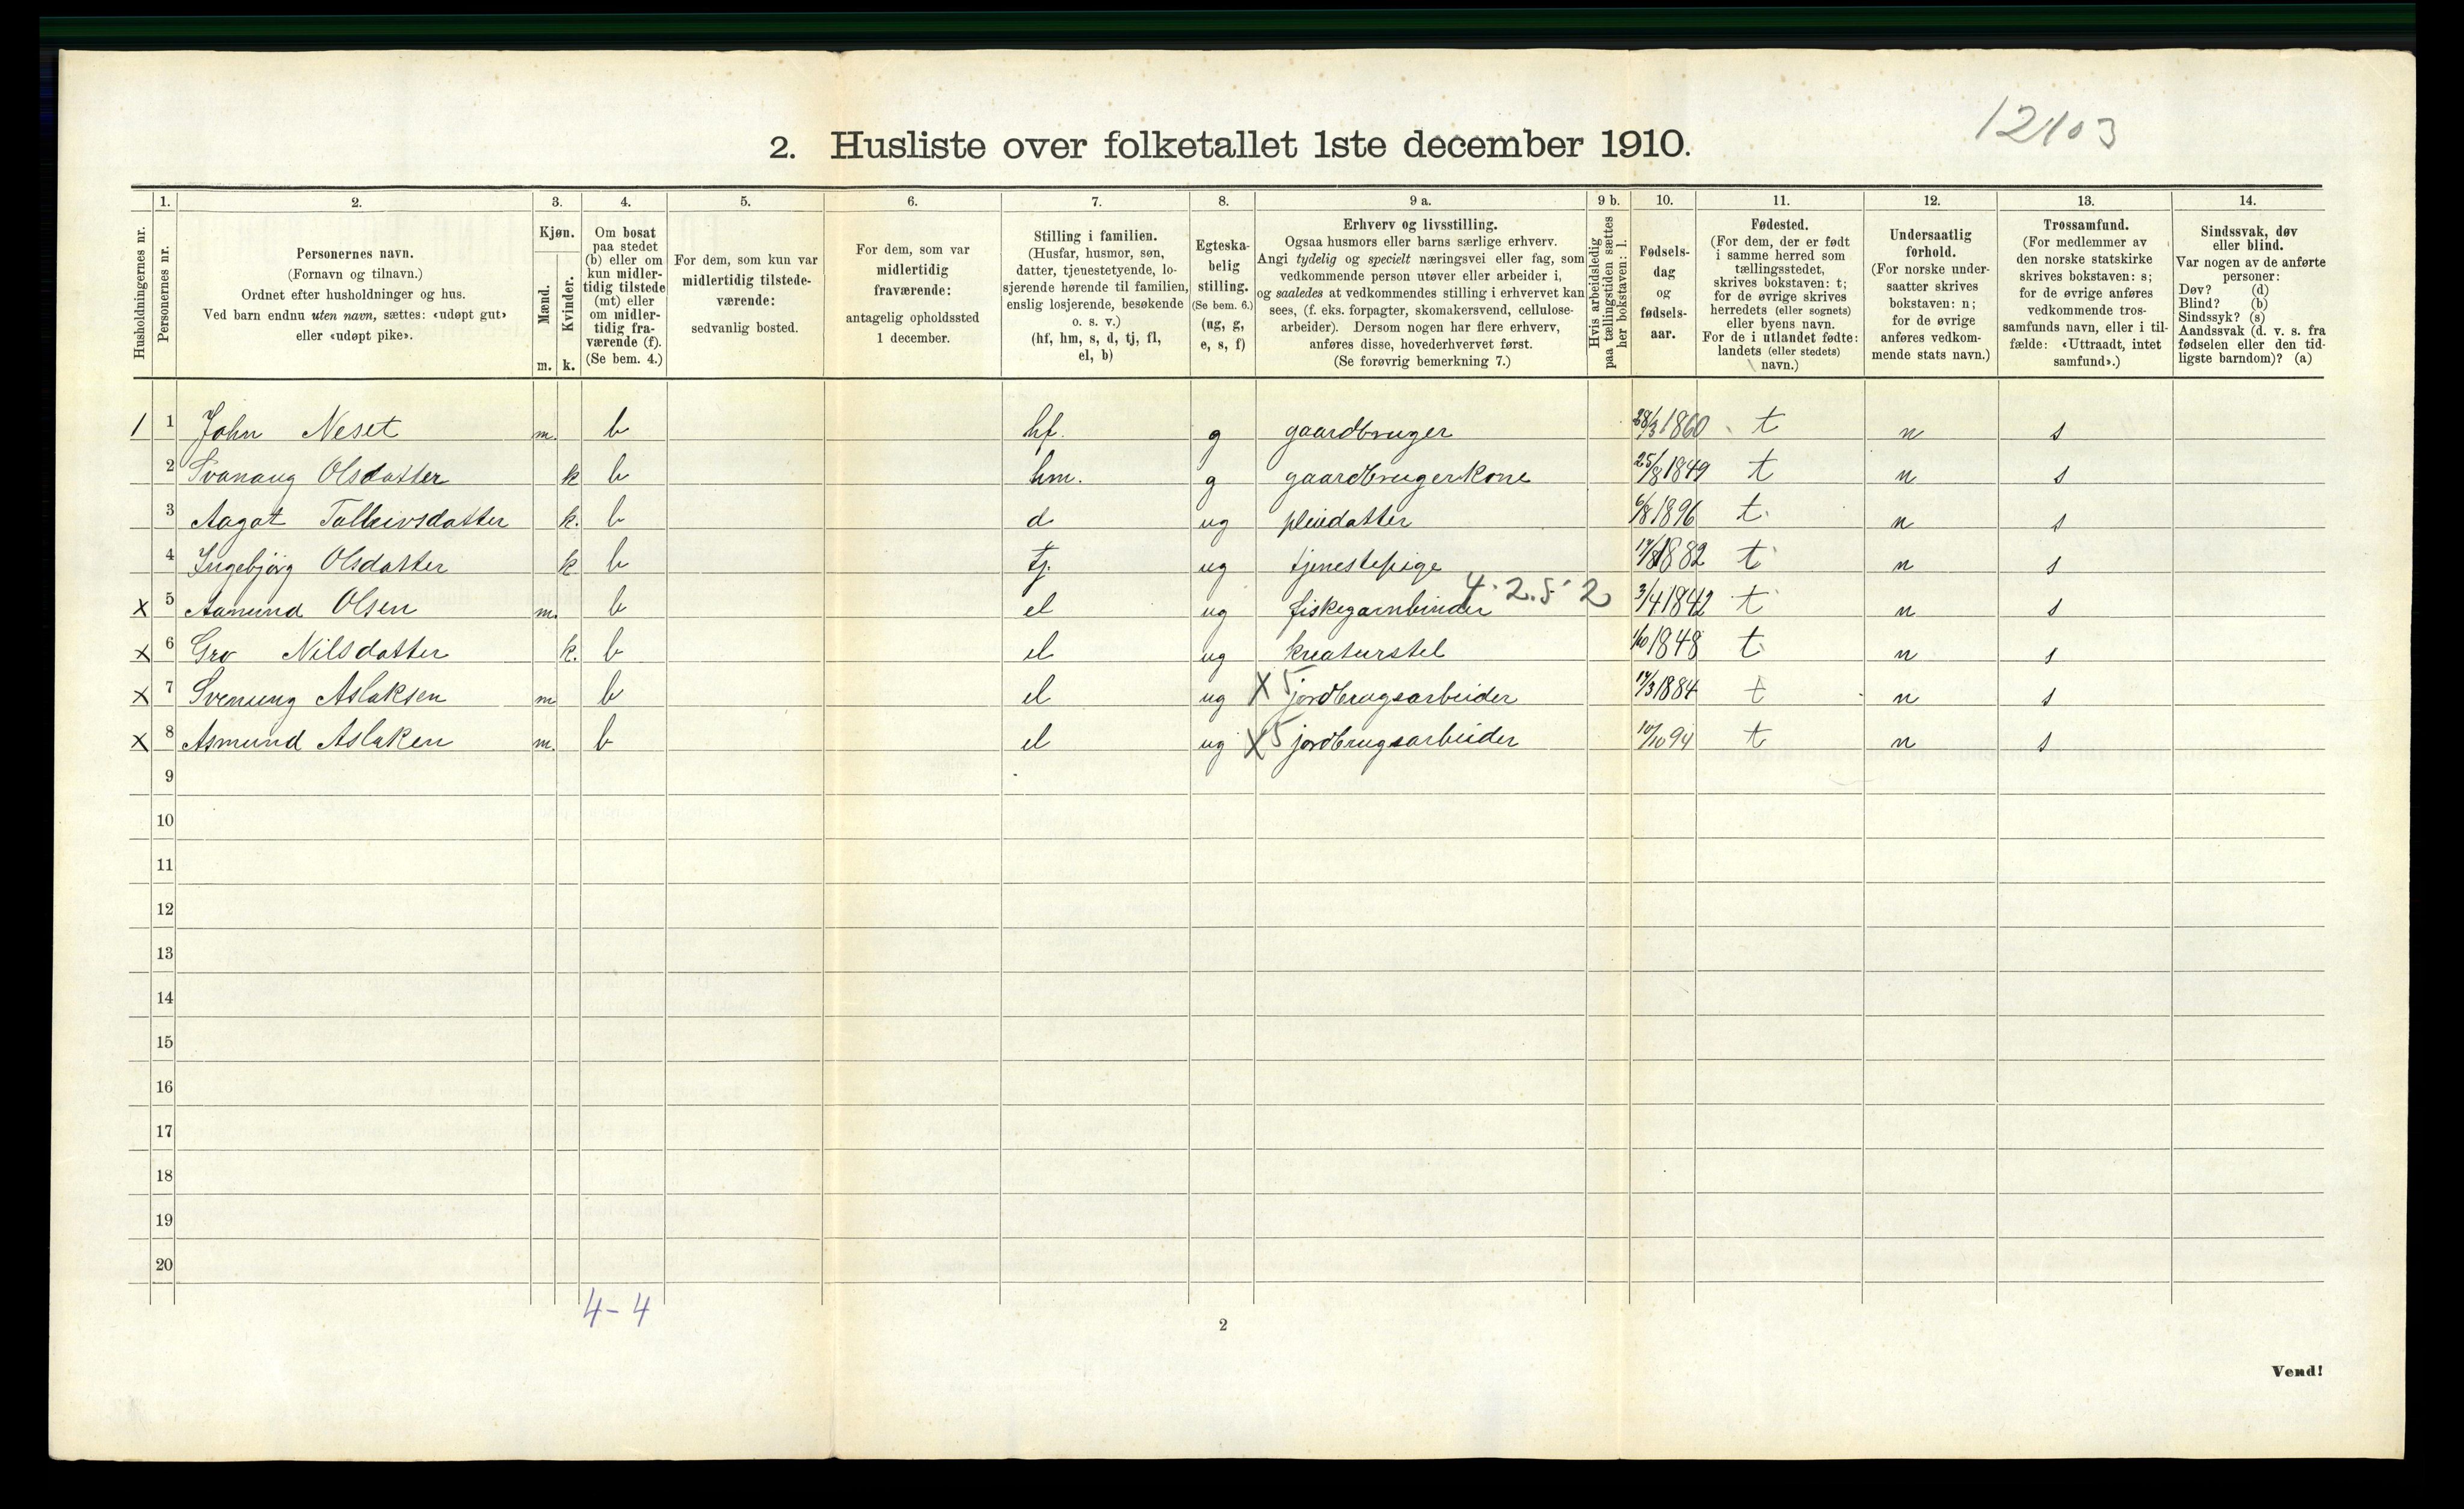 12103
2. Husliste over folketallet 1ste december 1910.
Husholdningernes nr.
1. Personernes nr.
2. Personernes navn. (Fornavn og tilnavn.) Ordnet efter husholdninger og hus. Ved barn endnu uten navn, sættes: «udøpt gut» eller «udøpt pike».
3. Kjøn. Mænd. m. Kvinder. k.
4. Om bosat paa stedet (b) eller om kun midlertidig tilstede (mt) eller om midlertidig fraværende (f). (Se bem. 4.)
5. For dem, som kun var midlertidig tilstedeværende: sedvanlig bosted.
6. For dem, som var midlertidig fraværende: antagelig opholdssted 1 december.
7. Stilling i familien. (Husfar, husmor, søn, datter, tjenestetyende, losjerende hørende til familien, enslig losjerende, besøkende o. s. v.) (hf, hm, s, d, tj, fl, el, b)
8. Egteskabelig stilling. (Se bem. 6.) (ug, g, e, s, f)
9 a. Erhverv og livsstilling. Ogsaa husmors eller barns særlige erhverv. Angi tydelig og specielt næringsvei eller fag, som vedkommende person utøver eller arbeider i, og saaledes at vedkommendes stilling i erhvervet kan sees, (f. eks. forpagter, skomakersvend, cellulosearbeider). Dersom nogen har flere erhverv, anføres disse, hovederhvervet først. (Se forøvrig bemerkning 7.)
9 b. Hvis arbeidsledig paa tællingstiden sættes her bokstaven: l.
10. Fødselsdag og fødselsaar.
11. Fødested. (For dem, der er født i samme herred som tællingsstedet, skrives bokstaven: t; for de øvrige skrives herredets (eller sognets) eller byens navn. For de i utlandet fødte: landets (eller stedets) navn.)
12. Undersaatlig forhold. (For norske undersaatter skrives bokstaven: n; for de øvrige anføres vedkommende stats navn.)
13. Trossamfund. (For medlemmer av den norske statskirke skrives bokstaven: s; for de øvrige anføres vedkommende trossamfunds navn, eller i tilfælde: «Uttraadt, intet samfund».)
14. Sindssvak, døv eller blind. Var nogen av de anførte personer: Døv? (d) Blind? (b) Sindssyk? (s) Aandssvak (d. v. s. fra fødselen eller den tidligste barndom)? (a)
1 1 John Neset m. b hf. g gaardbruger 28/3 1860 t n s
2 Svanaug Olsdatter k b hm. g gaardbrugerkone 25/8 1849 t n s
3 Aagot Talleivsdatter k. b d ug pleiedatter 6/8 1896 t. n s
4 Ingebjørg Olsdatter k b tj. ug tjenestepige 17/8 1882 t n s
4.2.5.2
x 5 Aamund Olsen m. b el ug fiskegarnbinder 3/4 1842 t n s
x 6 Gro Nilsdatter k. b el ug kreaturstel 1/10 1848 t n s
x 7 Svenung Aslaksen m b el ug X 5 jordbrugsarbeider 14/3 1884 t n s
x 8 Asmund Aslaken m. b el ug X 5 jordbrugsarbeider 10/10 94 t n s
9
10
11
12
13
14
15
16
17
18
19
20
4-4
2
Vend!